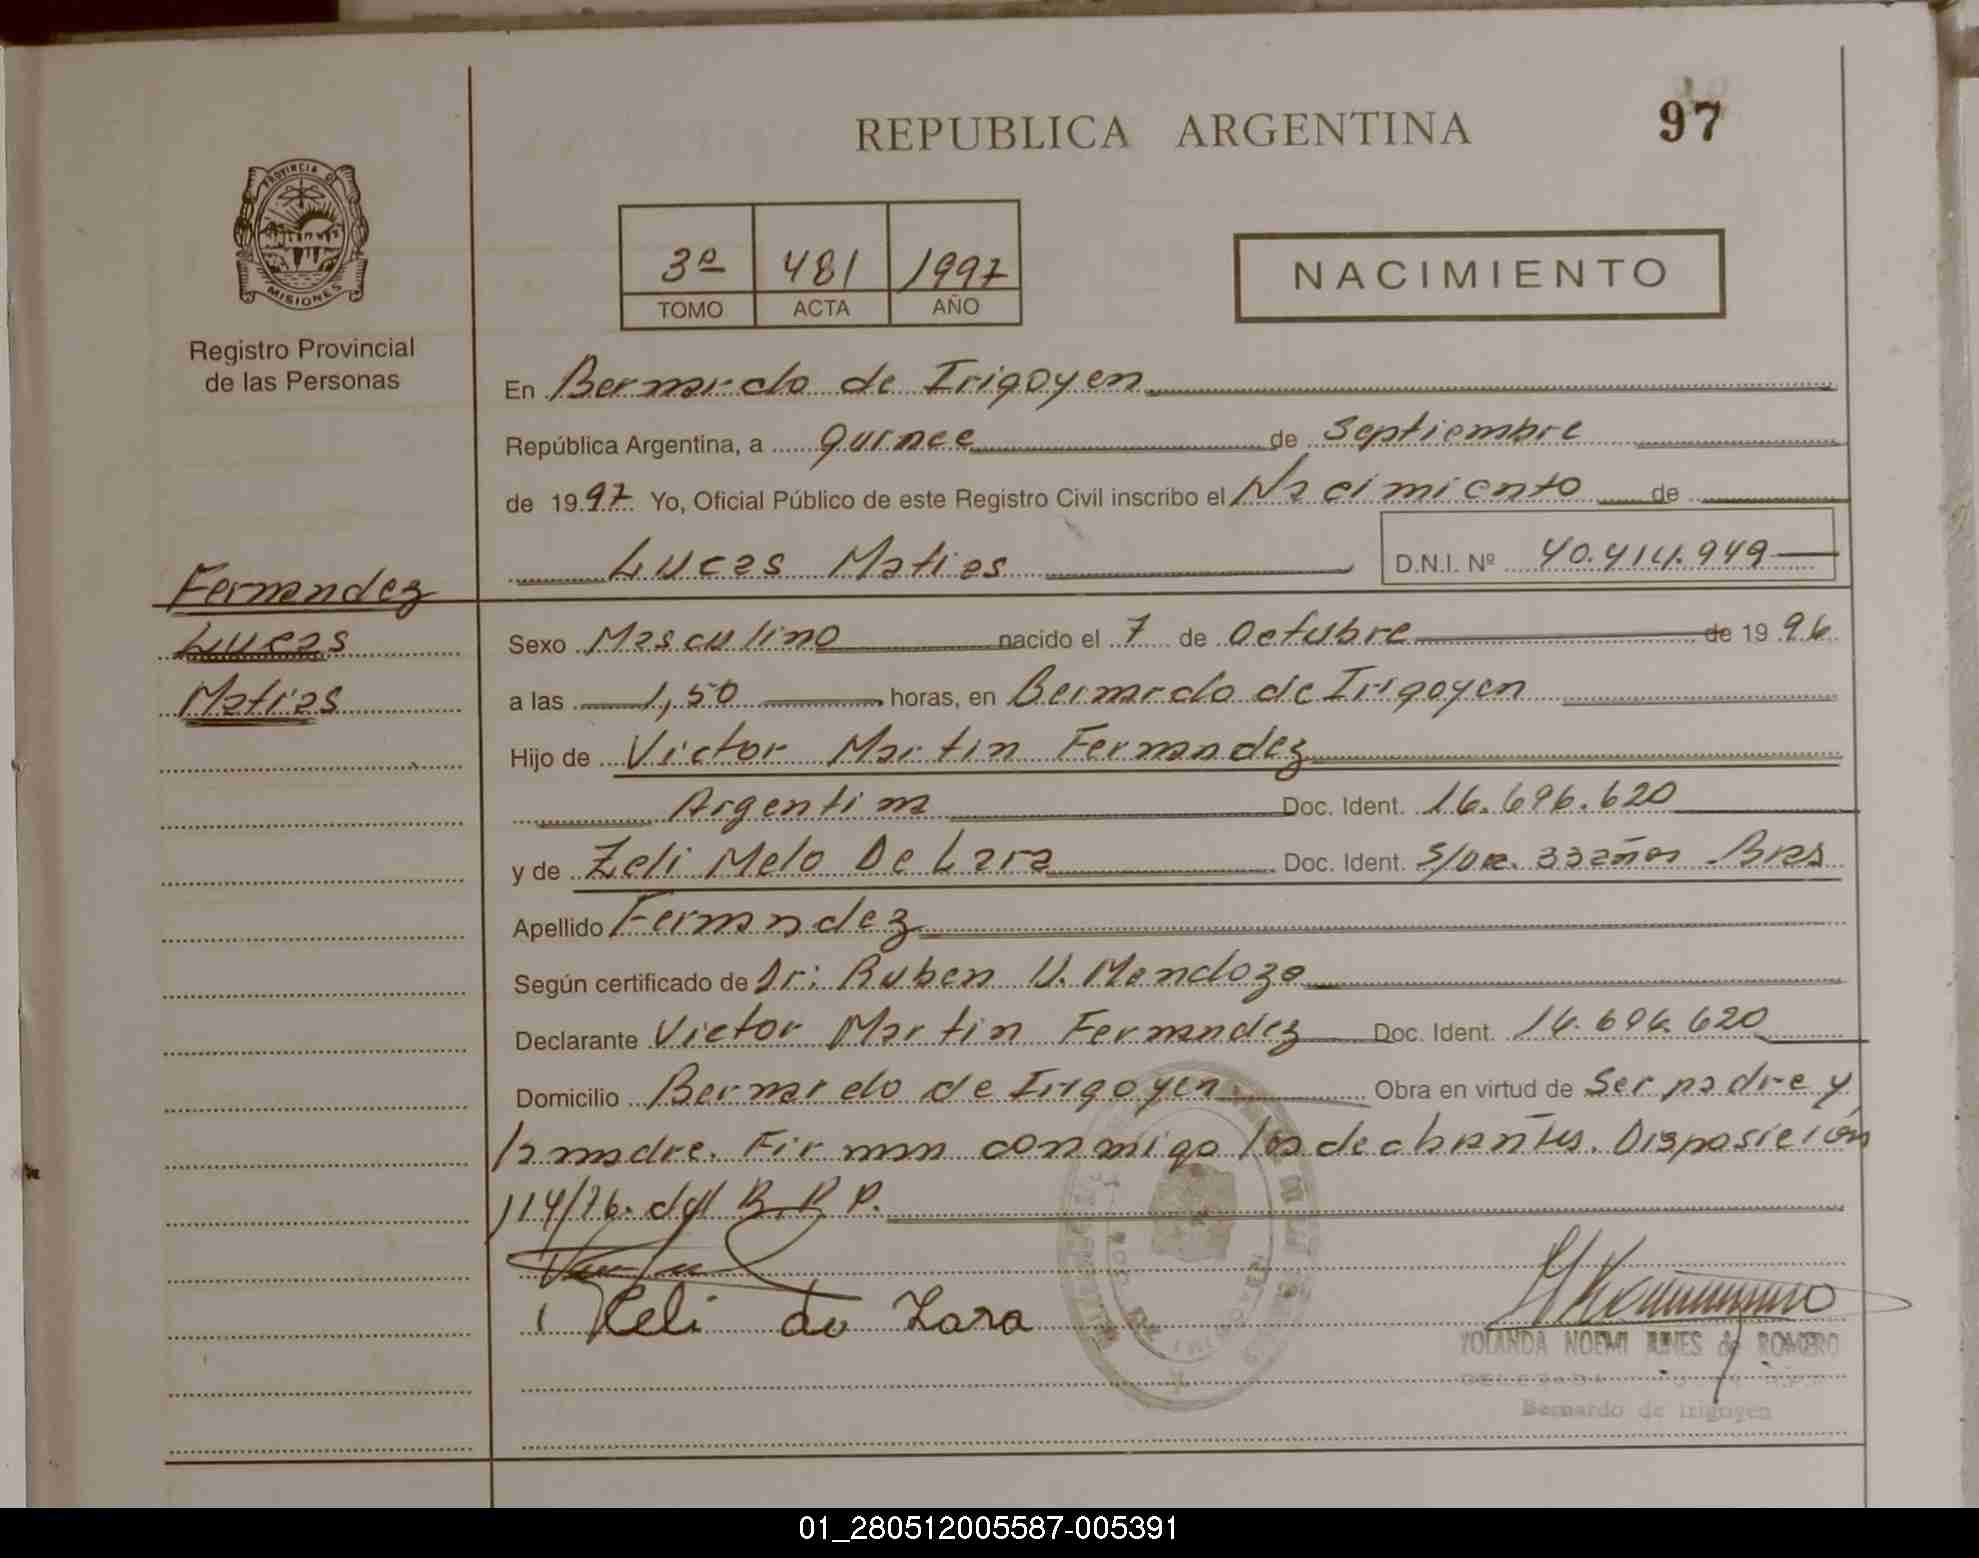 REPUBLICA ARGENTINA
97
PROVINCIA DE
MISIONES
Registro Provincial
de las Personas
3º 481 1997
TOMO ACTA AÑO
NACIMIENTO
En Bernardo de Irigoyen
República Argentina, a quince de Septiembre
de 1997 Yo, Oficial Público de este Registro Civil inscribo el Nacimiento de
Lucas Matias D.N.I. Nº 40.414.949
Fernandez
Lucas
Matias
Sexo Masculino nacido el 7 de Octubre de 1996
a las 1,50 horas, en Bernardo de Irigoyen
Hijo de Victor Martin Fernandez
Argentina Doc. Ident. 16.696.620
y de Zeli Melo De Lara Doc. Ident. S/Doc. 33 años Bras
Apellido Fernandez
Según certificado de Dr: Ruben U. Mendoza
Declarante Victor Martin Fernandez Doc. Ident. 16.696.620
Domicilio Bernardo de Irigoyen Obra en virtud de Ser padre y
la madre. Firman conmigo los declarantes. Disposición
114/76. del R.P.P.
Zeli de Lara
YOLANDA NOEMI de ROMERO
Bernardo de Irigoyen
01_280512005587-005391